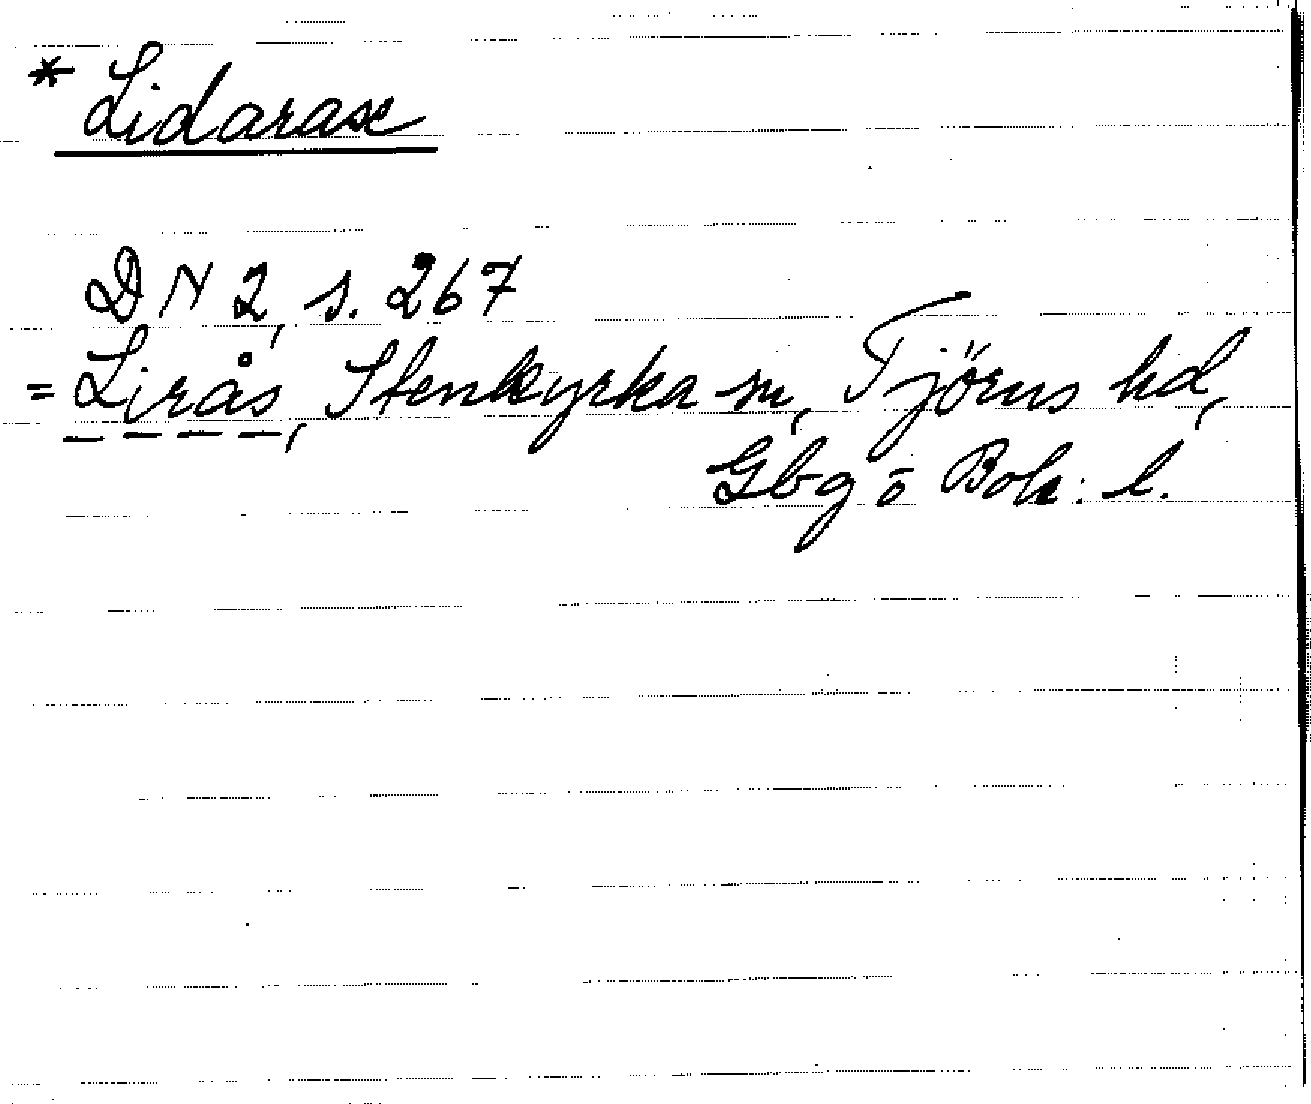 * Lidarase
DN 2, s. 267
= Lirås, Stenkyrka sn, Tjörns hd,
Gbg o Boh. l.